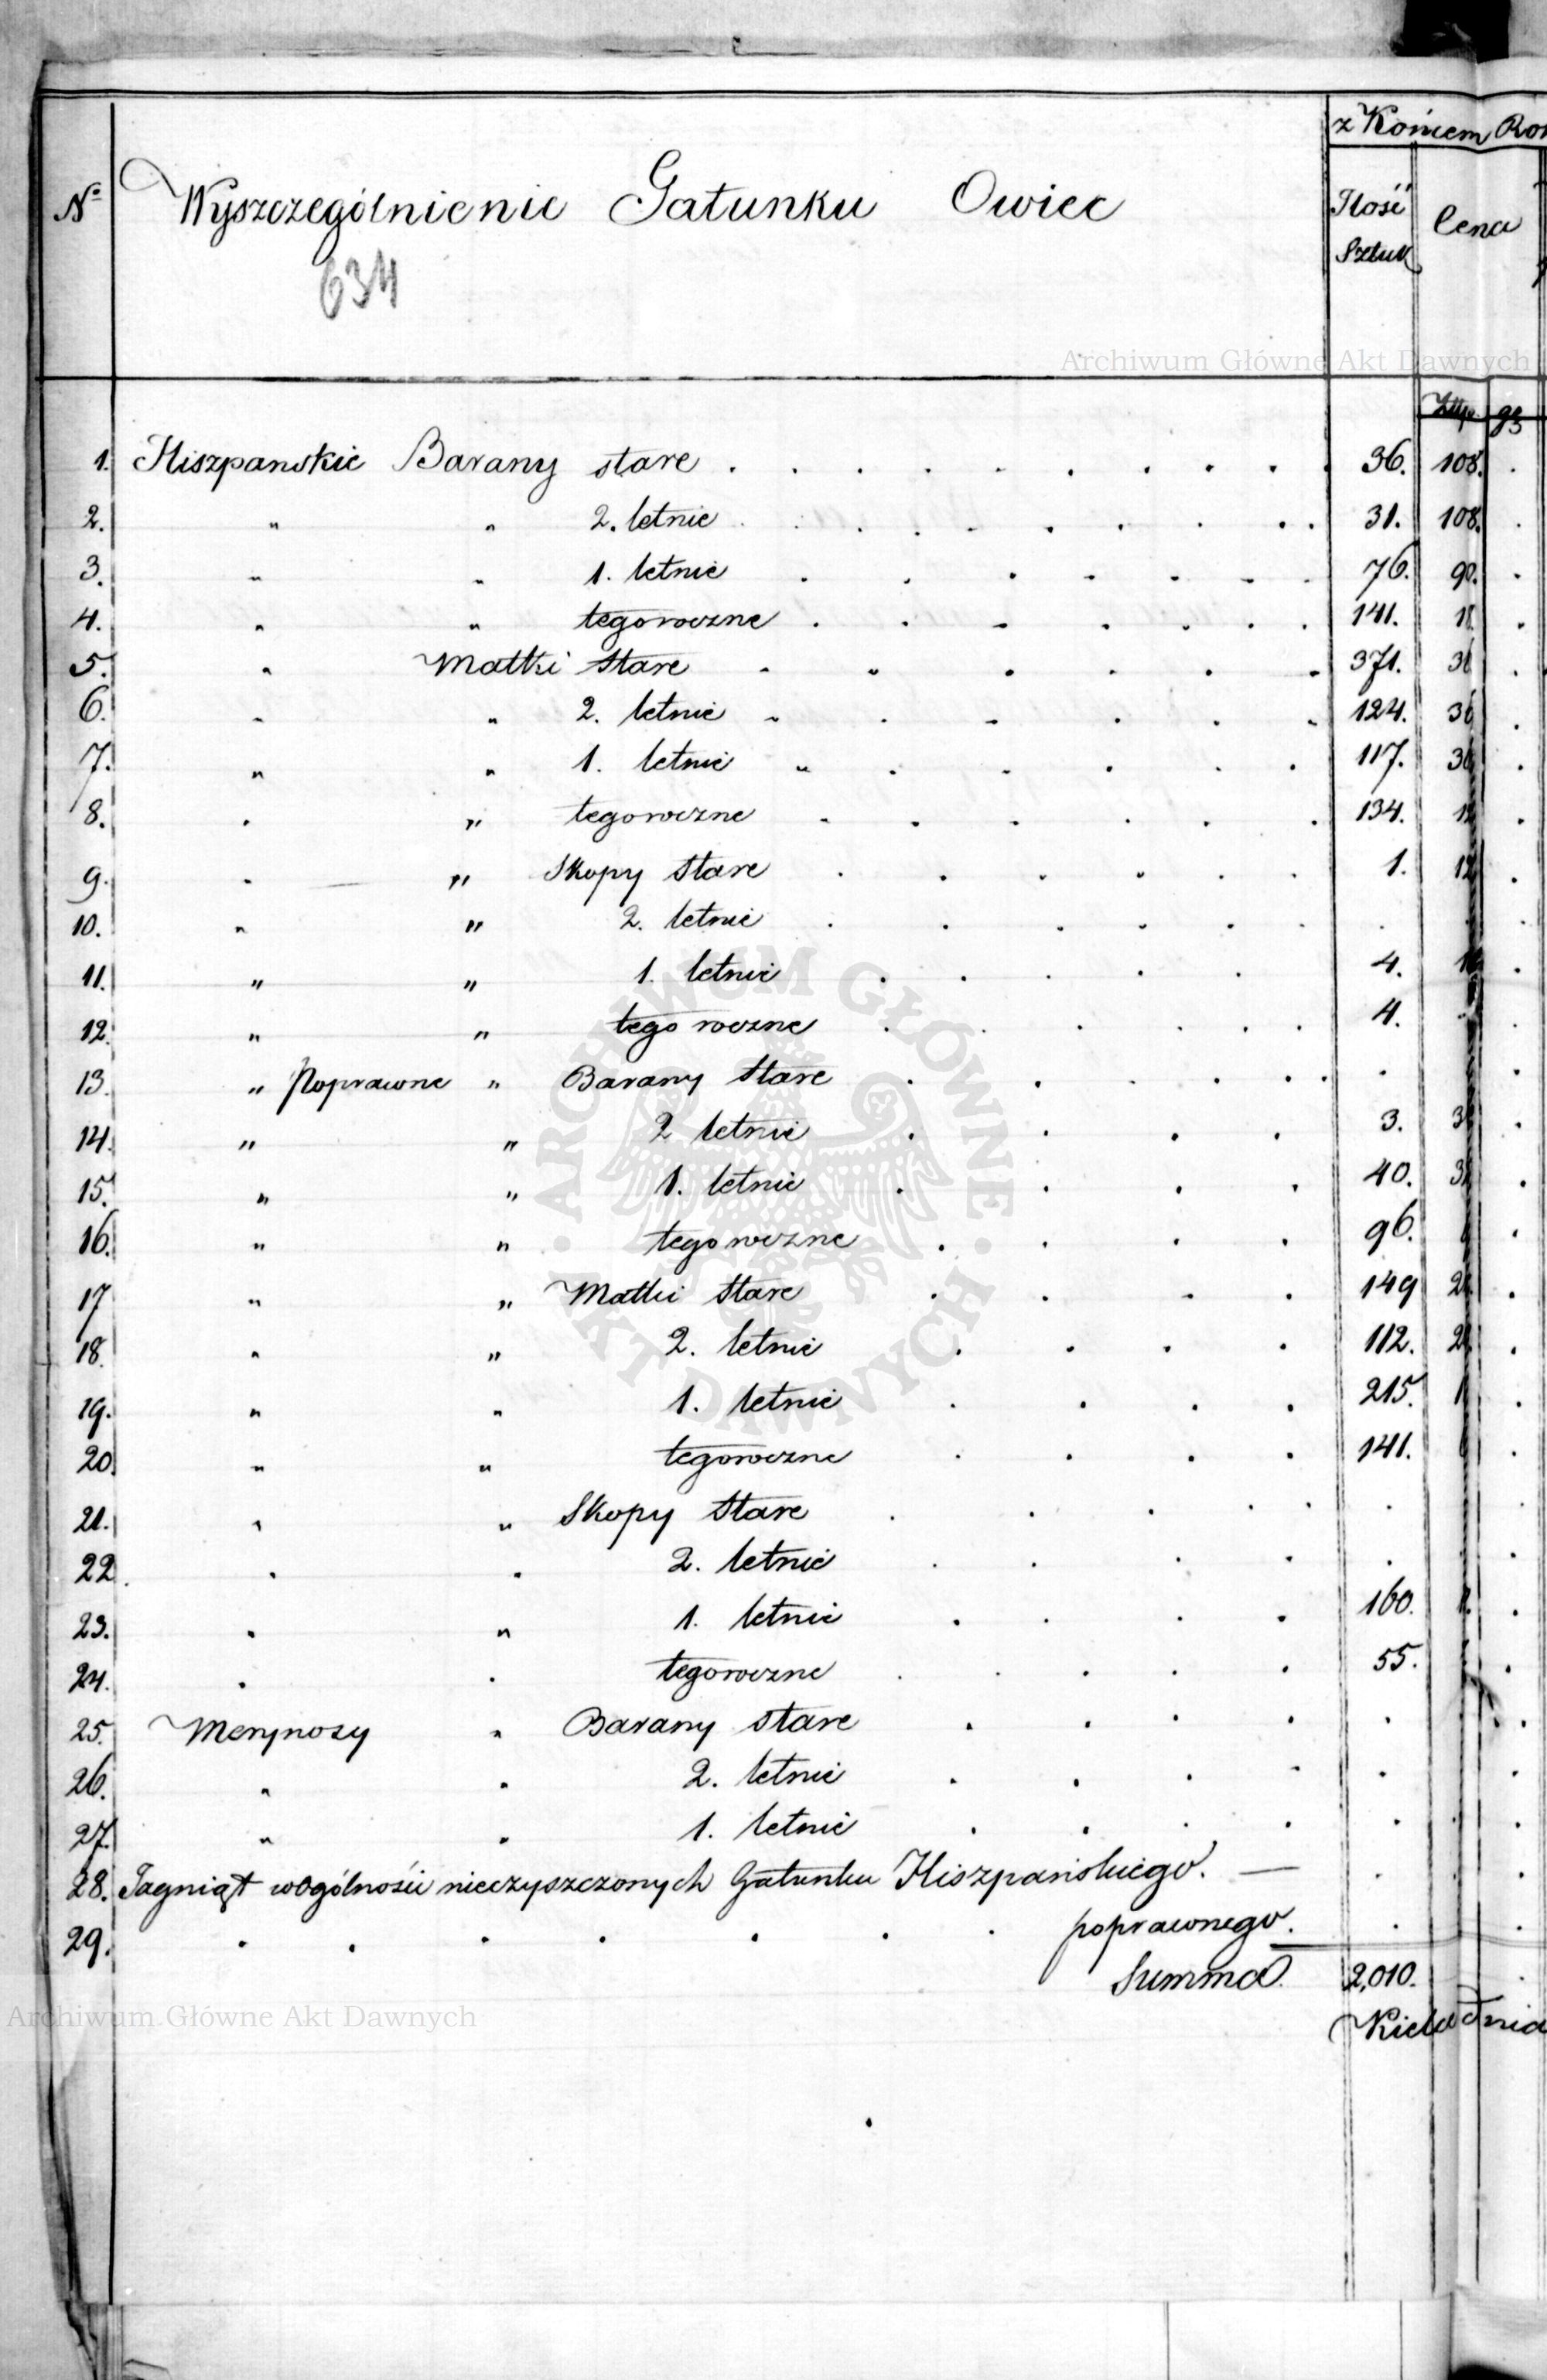 z Końcem
Nº Wyszczególnienie Gatunku Owiec Ilość Sztuk Cena
634
Archiwum Główne Akt Dawnych
Złtp. gr
1. Hiszpanskie Barany stare . . . . . . . . . 36. 108. .
2. " " 2. letnie . . . . . . . . 31. 108. .
3. " " 1. letnie . . . . . . . 76. 90. .
4. " " tegoroczne . . . . . . . 141. .
5. " Matki stare . . . . . . 371. .
6. " " 2. letnie . . . . . . 124. 36 .
7. " " 1. letnie . . . . . . 117. 36 .
8. " " tegoroczne . . . . . . 134. .
9. " " Skopy stare . . . . . . 1. 12 .
10. " " 2. letnie . . . . . . . . .
11. " " 1. letnie . . . . . 4. .
12. " " tego roczne . . . . . . 4. .
13. " Poprawne " Barany stare . . . . . . . .
14. " " 2 letnie . . . . 3. .
15. " " 1. letnie . . . . 40. .
16. " " tegoroczne . . . . 96. .
17 " " Matki stare . . . . 149 .
18. " " 2. letnie . . . . 112. .
19. " " 1. letnie . . . . 215. .
20. " " tegoroczne . . . . 141. .
21. " " Skopy stare . . . . . . .
22. " " 2. letnie . . . . . .
23. " " 1. letnie . . . . 160. .
24. " " tegoroczne . . . . . 55. .
25. Merynosy " Barany stare . . . . . .
26. " " 2. letnie . . . . . .
27. " " 1. letnie . . . . . . .
28. Jagniąt wogólności nieczyszczonych Gatunku Hiszpańskiego. — . . .
29. . . . . . . . poprawnego. . .
Summa. 2,010. .
Archiwum Główne Akt Dawnych
ARCHIWUM GŁÓWNE · AKT DAWNYCH ·